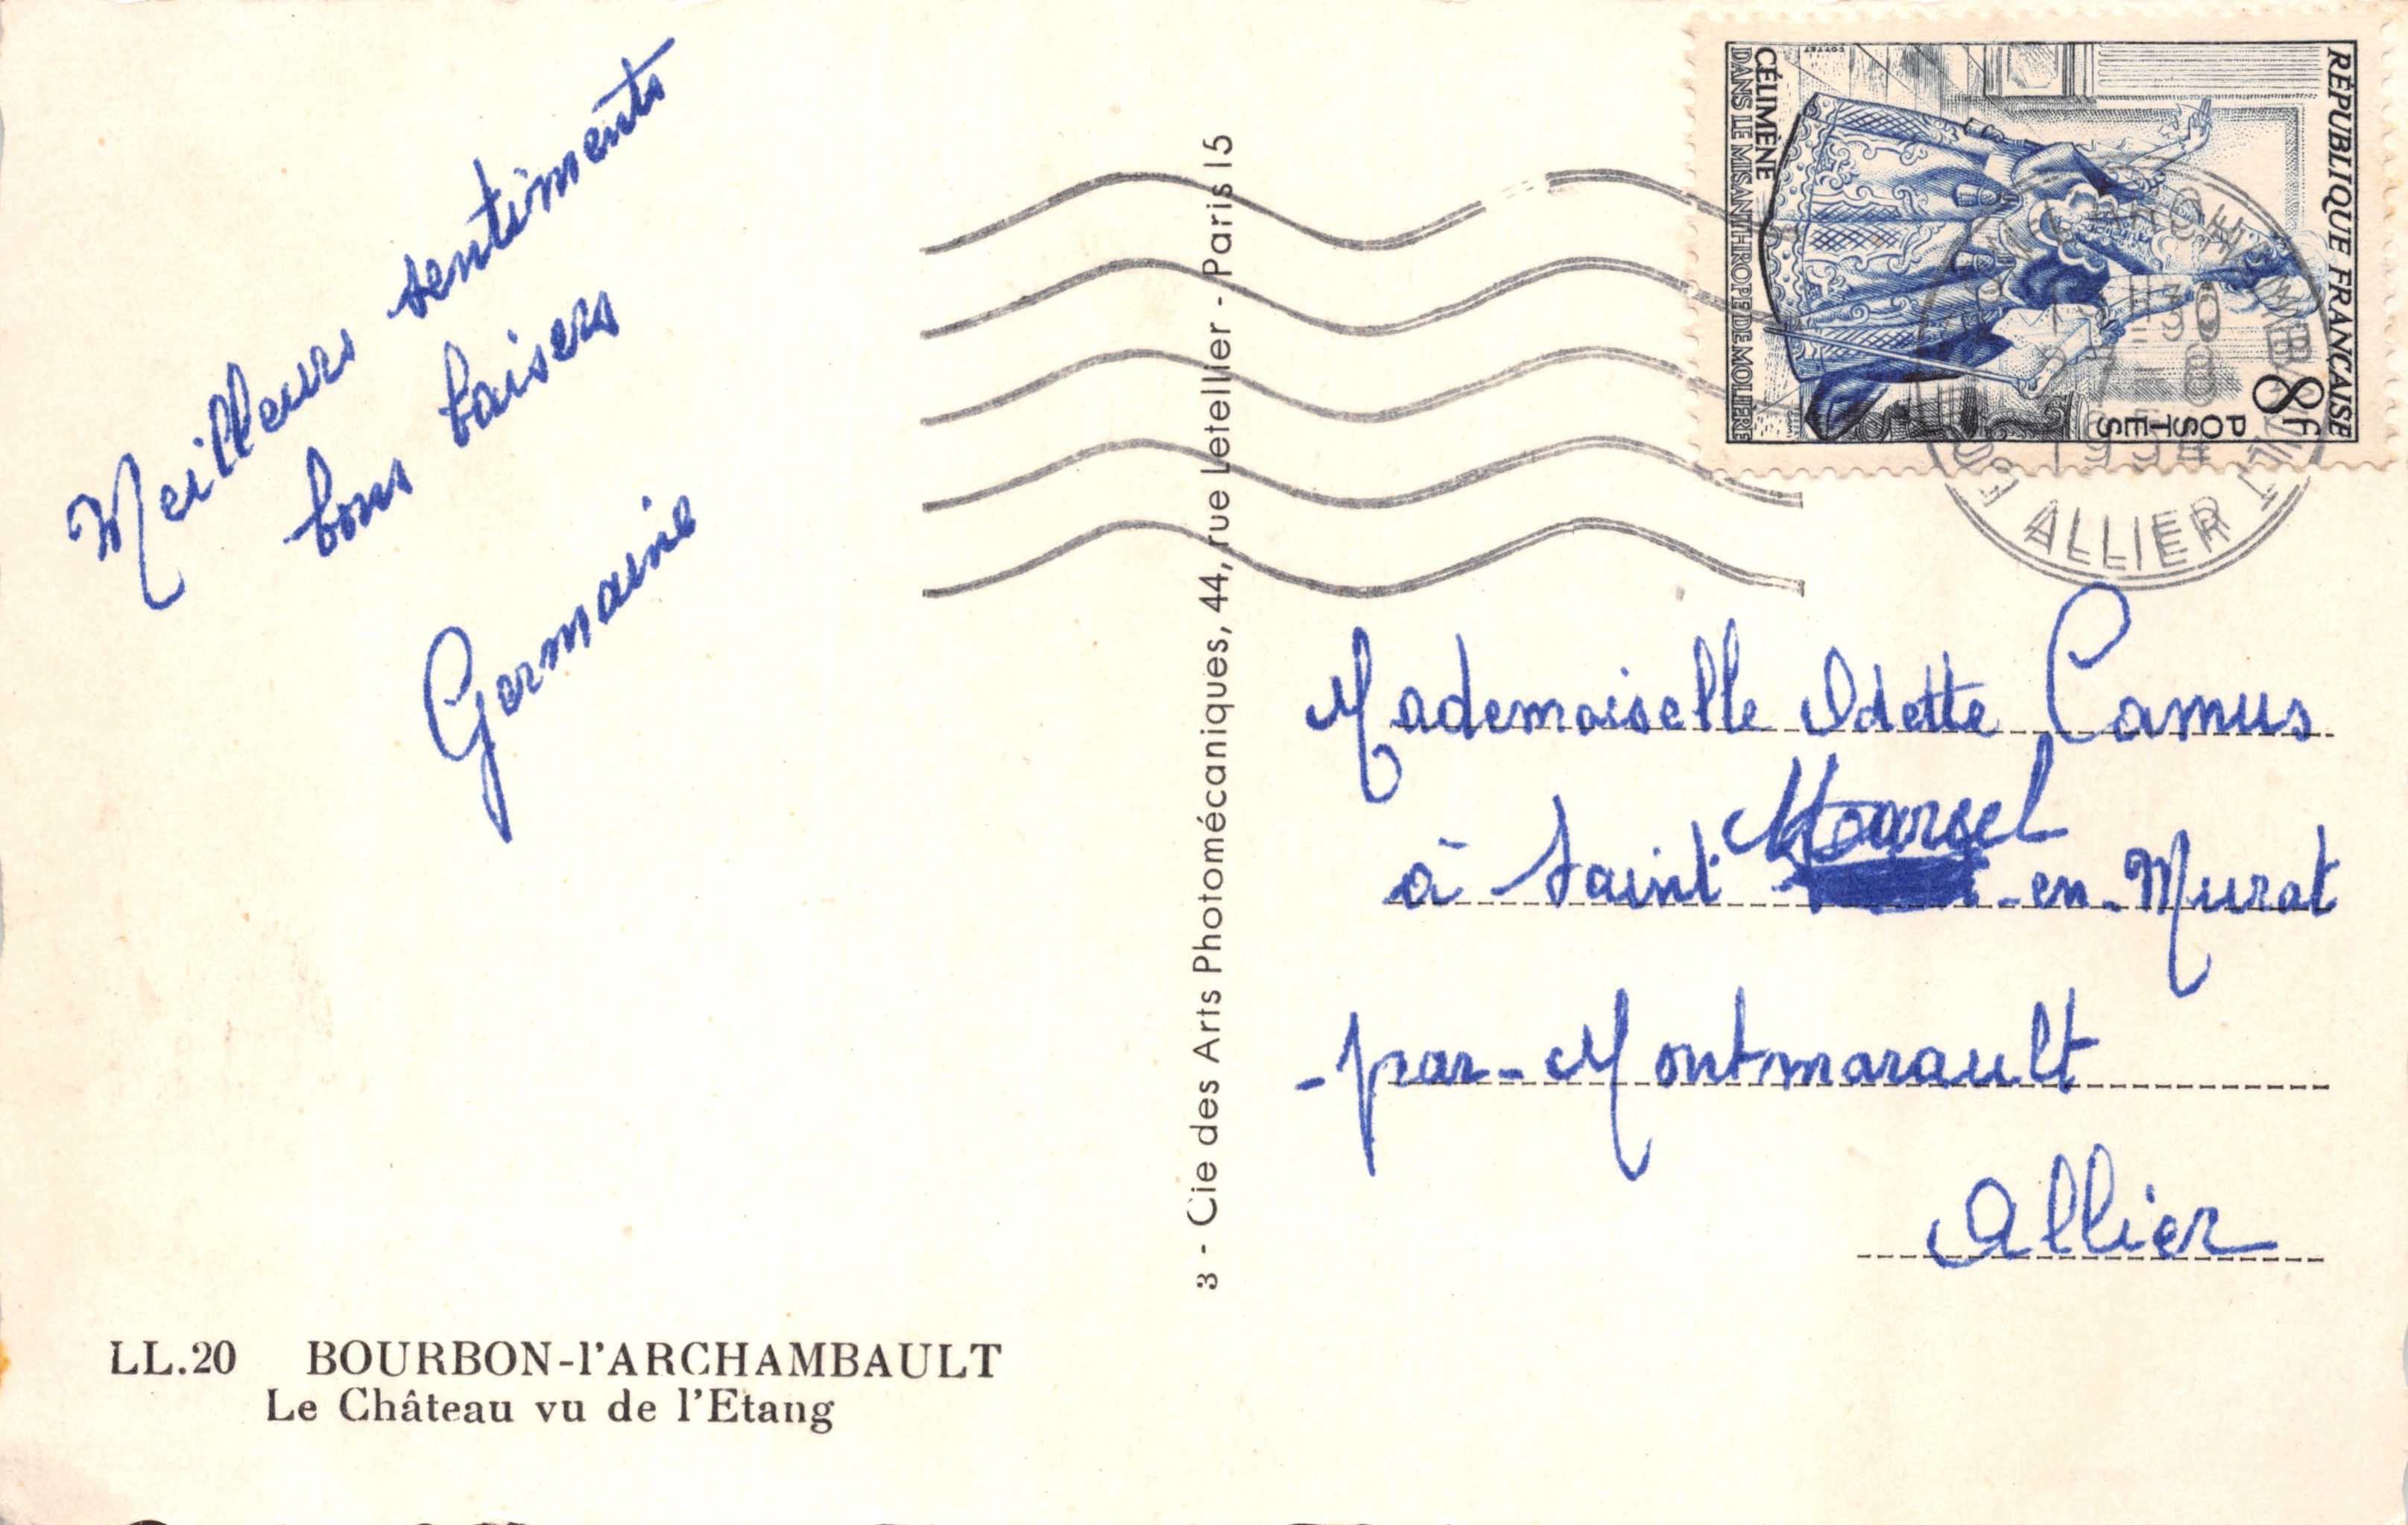 Meilleurs sentiments
bons baisers
Germaine
LL.20 BOURBON-l'ARCHAMBAULT
Le Château vu de l'Etang
3 - Cie des Arts Photomécaniques, 44, rue Letellier - Paris 15
RÉPUBLIQUE FRANÇAISE
8F
POSTES
CÉLIMÈNE
DANS LE MISANTHROPE DE MOLIÈRE
COTTET
7-8
1954
ALLIER
Mademoiselle Odette Camus
à Saint Marcel -en-Murat
-par-Montmarault
Allier